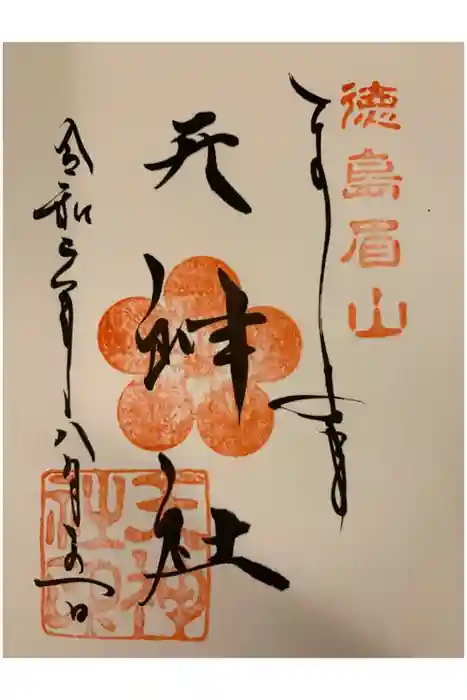 徳島眉山
奉拝
天神社
令和二年八月 日
天神
社印